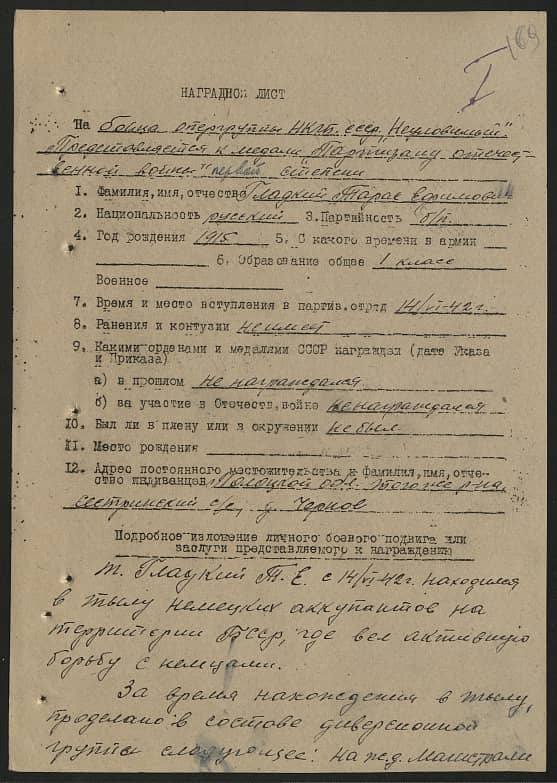 169
I
НАГРАДНОЙ ЛИСТ
На бойца опергруппы НКГБ СССР "Неуловимый"
Представляется к медали "Партизану отечест-
венной войны" первой степени
1. Фамилия, имя, отчество Гладкий Тарас Ефимович
2. Национальность русский 3. Партийность б/п.
4. Год рождения 1915 5. С какого времени в армии
6. Образование общее 1 класс
Военное
7. Время и место вступления в партиз. отряд 14/VI-42 г.
8. Ранения и контузии не имеет
9. Какими орденами и медалями СССР награжден (дата Указа
и Приказа)
а) в прошлом не награждался
б) за участие в Отечеств. войне не награждался
10. Был ли в плену или в окружении не был
11. Место рождения
12. Адрес постоянного местожительства и фамилия, имя, отче-
ство Полоцкой обл. этого же р-на,
сестринский с/с, д. Чернов
Подробное изложение личного боевого подвига или
заслуги представляемого к награждению
т. Глацкий Т. Е. с 14/VI-42 г. находился
в тылу немецких аккупантов на
территории БССР, где вел активную
борьбу с немцами.
За время нахождения в тылу,
проделано в составе диверсионной
группы следующее: на ж.д. магистрали